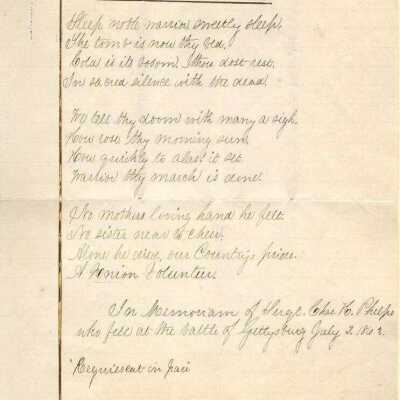 Sleep noble warrior sweetly sleep.
The tomb is now thy bed.
Cold is its bosom thou dost rest.
In sacred silence with the dead.
We tell thy doom with many a sigh.
How rose thy morning sun.
How quickly to alas it set
Warrior thy march is done.
No mothers loving hand he felt.
No sister near to cheer.
Alone he our Country's
A Union Volunteer.
In Memoriam of Sergt. Chas H. Phelps
who fell at the battle of Gettysburg July 2. 1863.
"Requiescat in pace